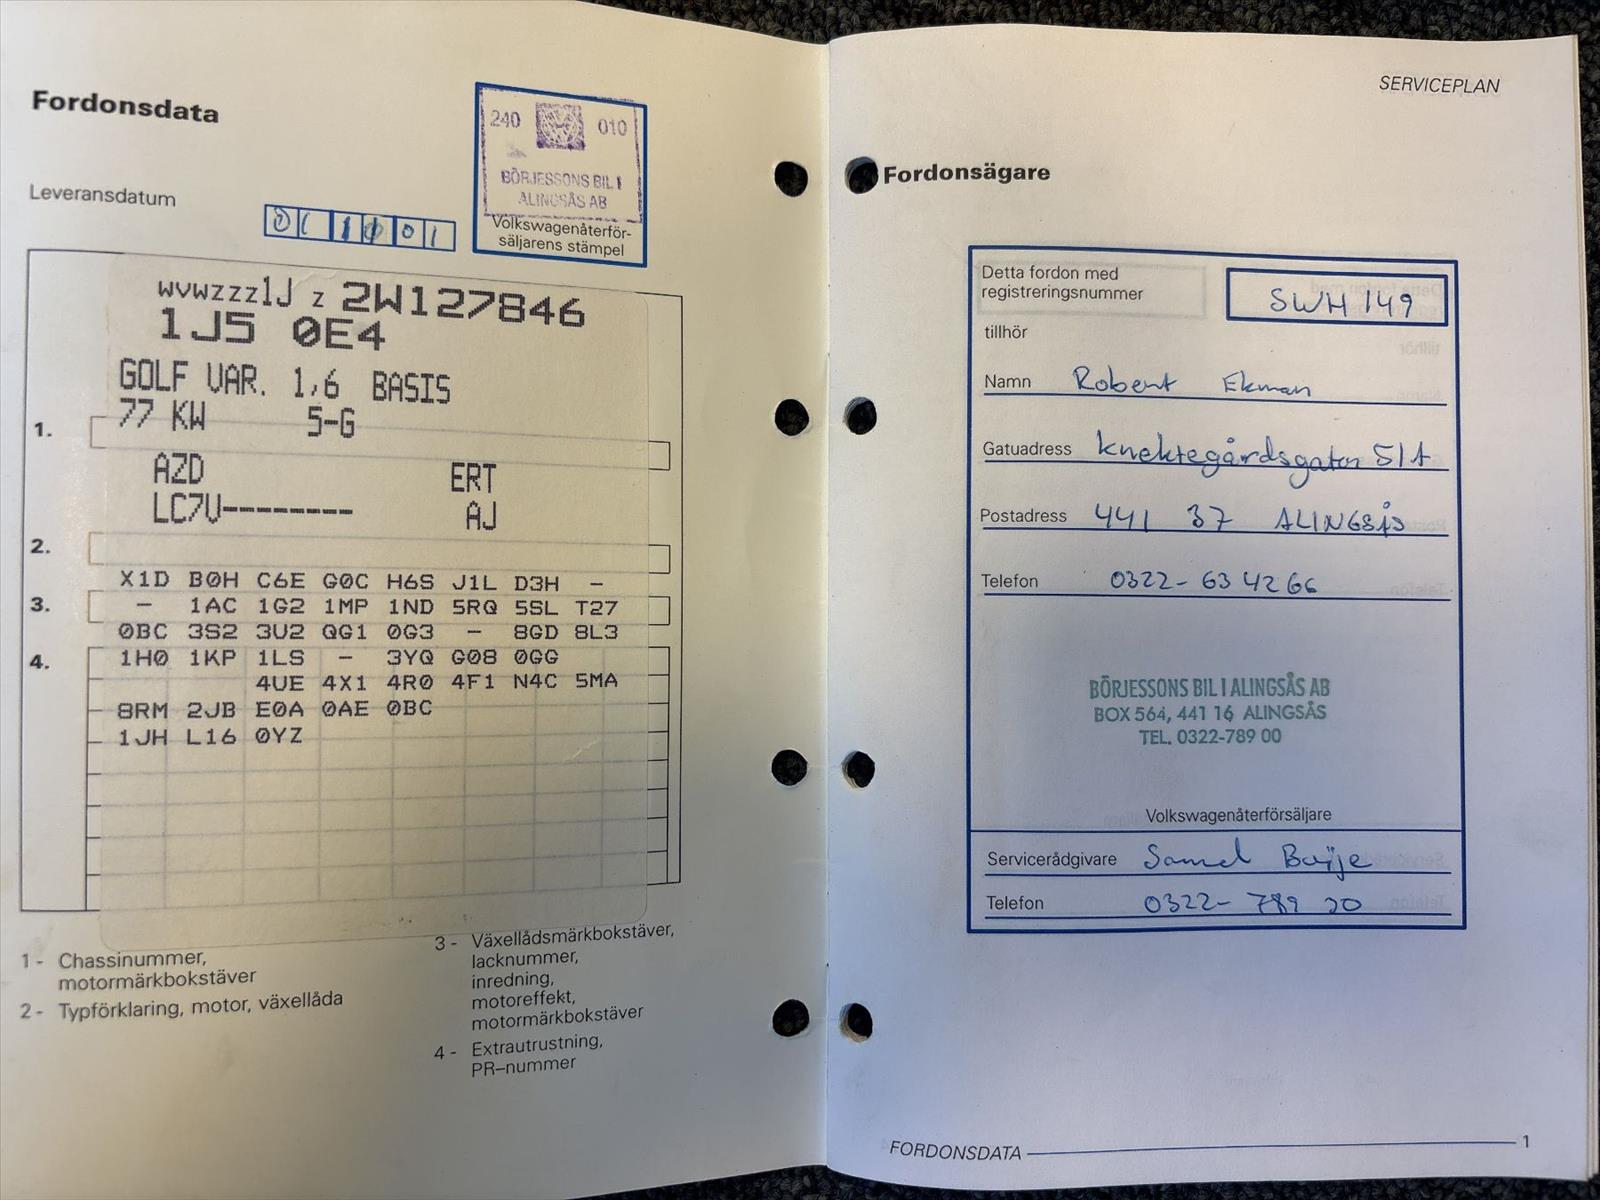 Fordonsdata
240 010
BÖRJESSONS BIL I
ALINGSÅS AB
Volkswagenåterför-
säljarens stämpel
Leveransdatum
WVWZZZ1J Z 2W127846
1J5 0E4
GOLF VAR. 1,6 BASIS
77 KW 5-G
1.
AZD ERT
LC7V-------- AJ
2.
X1D B0H C6E G0C H6S J1L D3H -
3.
- 1AC 1G2 1MP 1ND 5RQ 5SL T27
0BC 3S2 3U2 QG1 0G3 - 8GD 8L3
4.
1H0 1KP 1LS - 3YQ G08 0GG
4UE 4X1 4R0 4F1 N4C 5MA
8RM 2JB E0A 0AE 0BC
1JH L16 0YZ
1 - Chassinummer,
motormärkbokstäver
2 - Typförklaring, motor, växellåda
3 - Växellådsmärkbokstäver,
lacknummer,
inredning,
motoreffekt,
motormärkbokstäver
4 - Extrautrustning,
PR-nummer
SERVICEPLAN
Fordonsägare
Detta fordon med
registreringsnummer
SWH 149
tillhör
Namn Robert Ekman
Gatuadress Knektegårdsgatan
Postadress 441 37 ALINGSÅS
Telefon 0322-63 42 66
BÖRJESSONS BIL I ALINGSÅS AB
BOX 564, 441 16 ALINGSÅS
TEL. 0322-789 00
Volkswagenåterförsäljare
Servicerådgivare
Telefon 0322- 789 20
FORDONSDATA 1